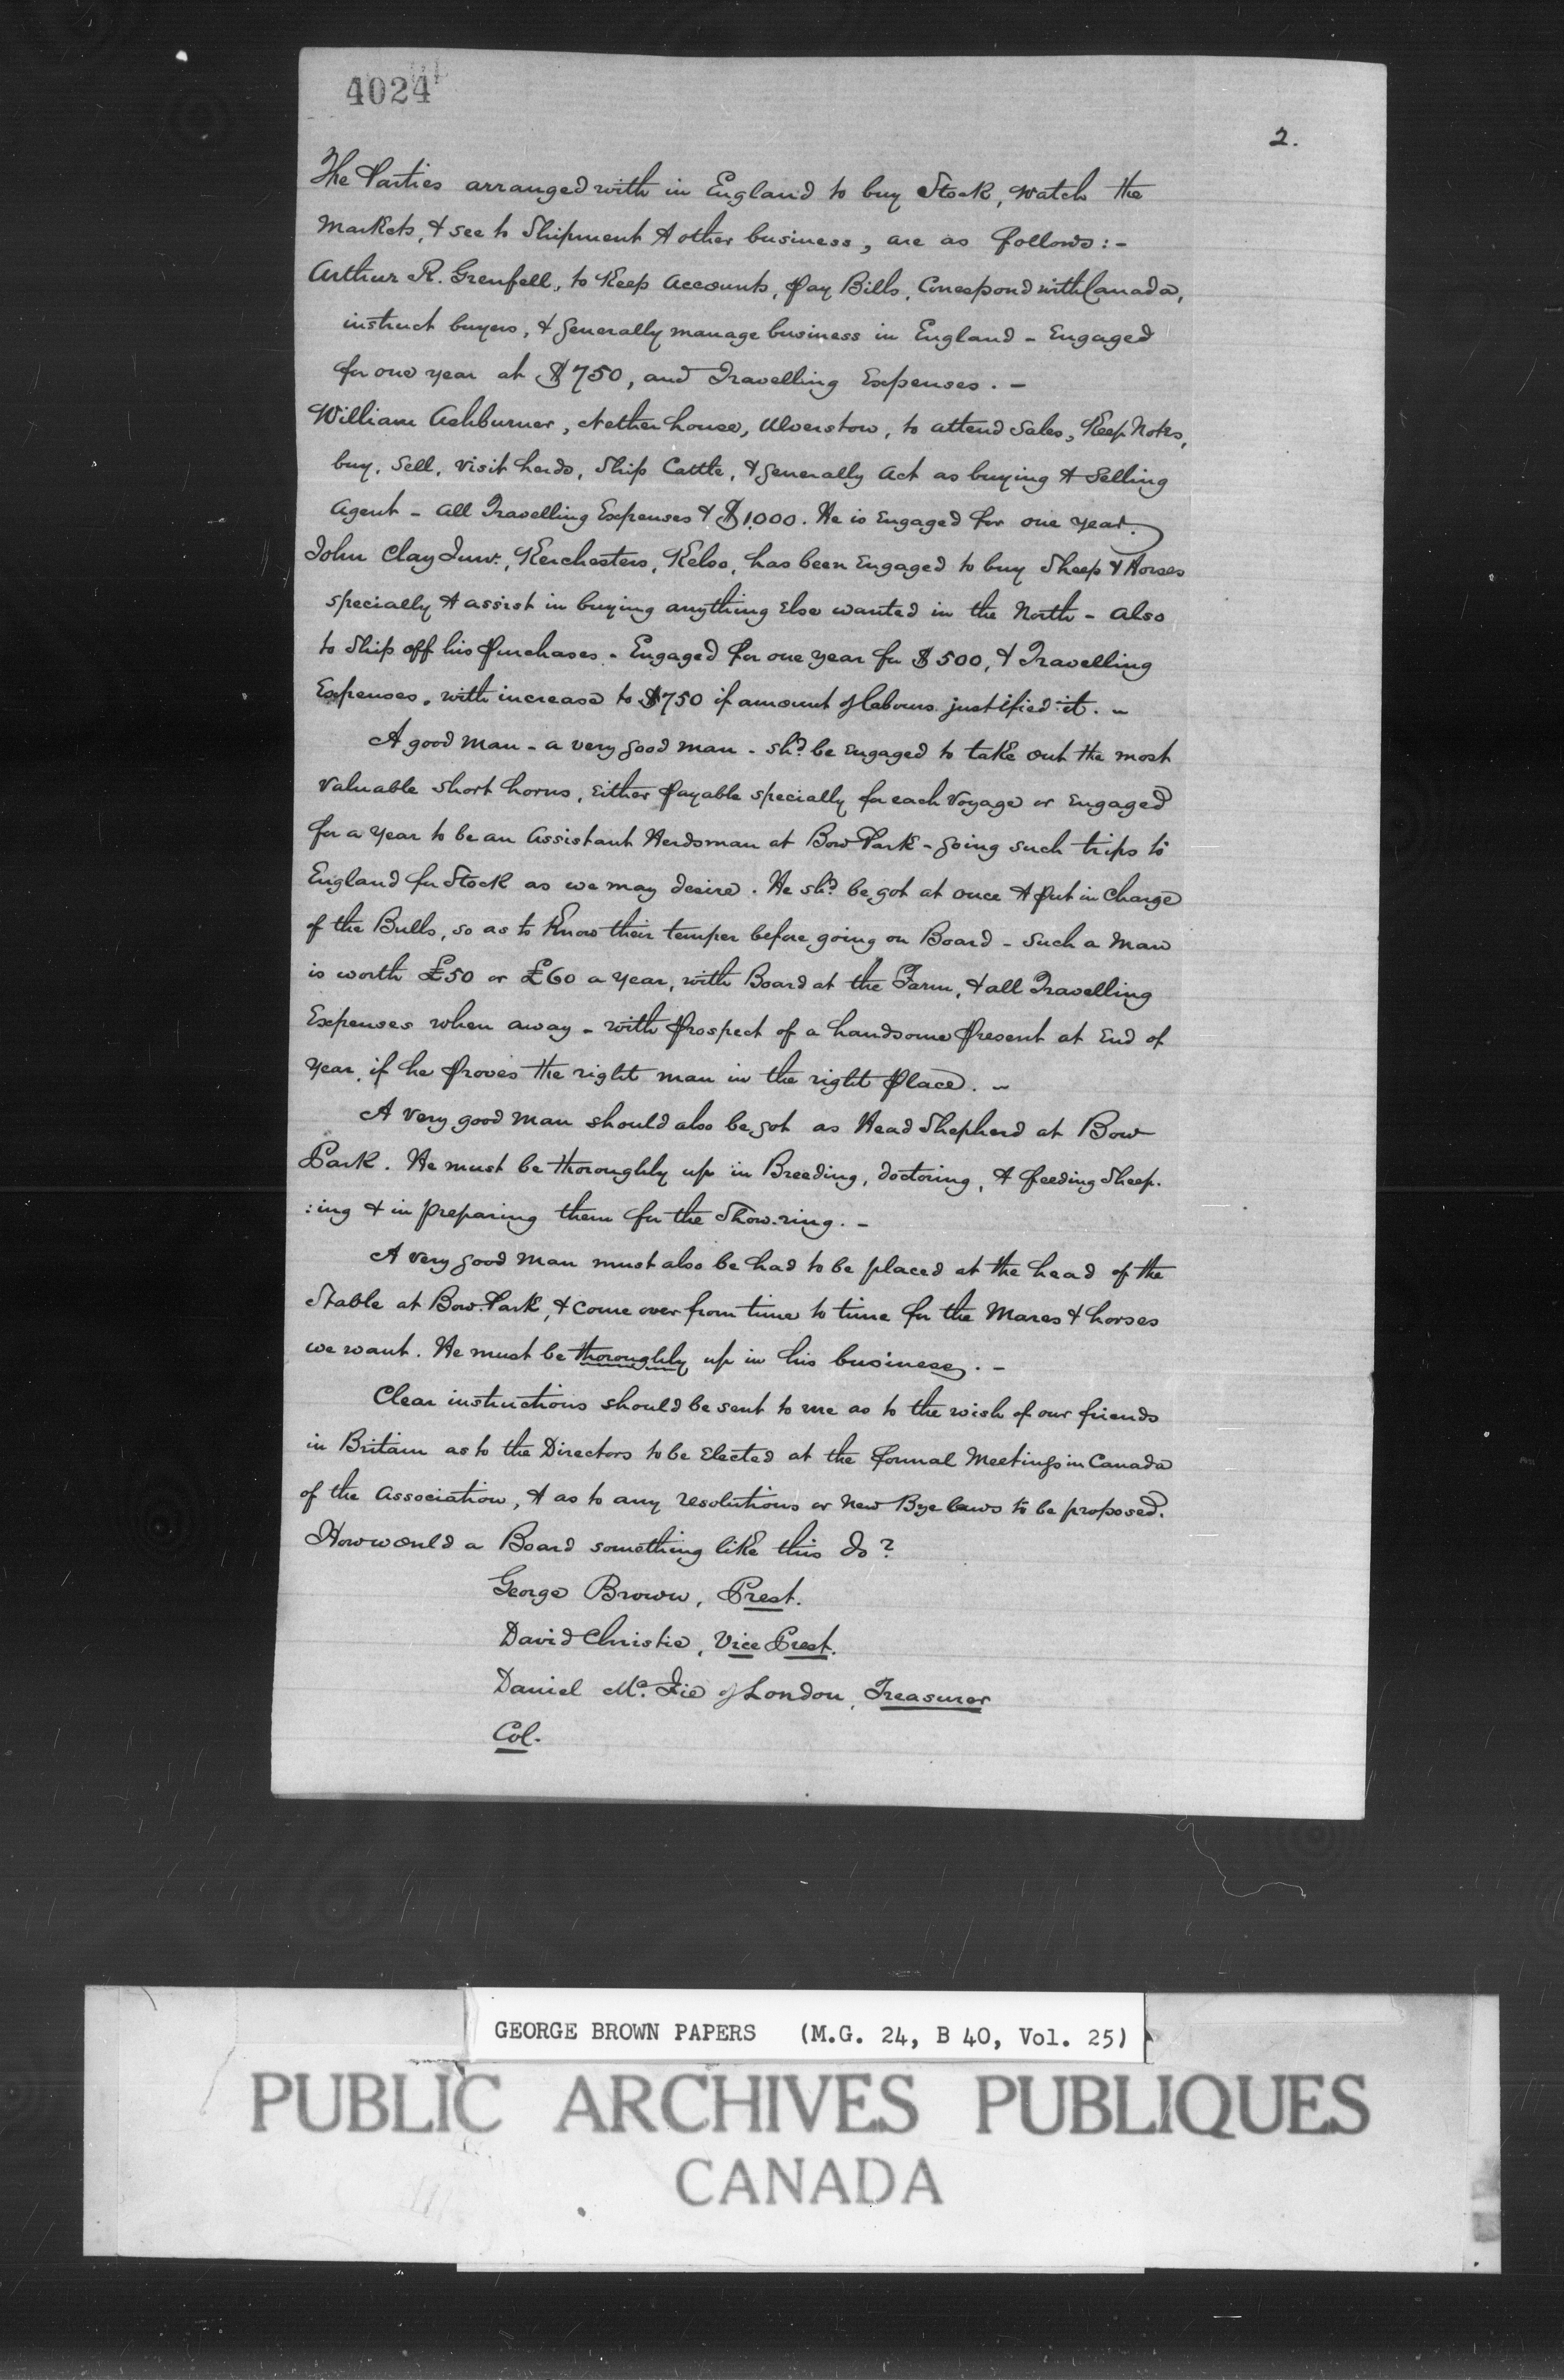 4024
2.
The Parties arranged with in England to buy Stock, watch the
Markets, & see to Shipment & other business, are as follows:-
Arthur R. Grenfell, to Keep Accounts, pay Bills, Correspond with Canada,
instruct buyers, & generally manage business in England - Engaged
for one year at $750, and Travelling Expenses. -
William Ashburner, Nether house, Ulverston, to attend Sales, Keep Notes,
buy, Sell, visit herds, Ship Cattle, & generally Act as buying & Selling
Agent - All Travelling Expenses & $1,000. He is Engaged for one year.
John Clay Junr., Kerchesters, Kelso, has been Engaged to buy Sheep & Horses
specially & assist in buying anything Else wanted in the North - also
to Ship off his purchases. Engaged for one year for $500, & Travelling
Expenses, with increase to $750 if amount of labours justified it. -
A good man - a very good man - shd. be Engaged to take out the most
valuable short horns, Either payable specially for each Voyage or Engaged
for a Year to be an Assistant Herdsman at Bow Park - going such trips to
England for Stock as we may desire. He shd. be got at once & put in charge
of the Bulls, so as to Know their temper before going on Board - Such a Man
is worth £50 or £60 a Year, with Board at the Farm, & all Travelling
Expenses when away - with prospect of a handsome present at End of
Year, if he proves the right man in the right place. -
A very good man should also be got as Head Shepherd at Bow
Park. He must be thoroughly up in Breeding, doctoring, & feeding Sheep.
:ing & in preparing them for the Show-ring. -
A very good man must also be had to be placed at the head of the
Stable at Bow Park, & come over from time to time for the Mares & horses
we want. He must be thoroughly up in his business. -
Clear instructions should be sent to me as to the wish of our friends
in Britain as to the Directors to be Elected at the formal Meetings in Canada
of the Association, & as to any resolutions or New Bye laws to be proposed.
How would a Board something like this do?
George Brown, Prest.
David Christie, Vice Prest.
Daniel Mc. Fie of London, Treasurer
Col.
GEORGE BROWN PAPERS (M.G. 24, B 40, Vol. 25)
PUBLIC ARCHIVES PUBLIQUES
CANADA